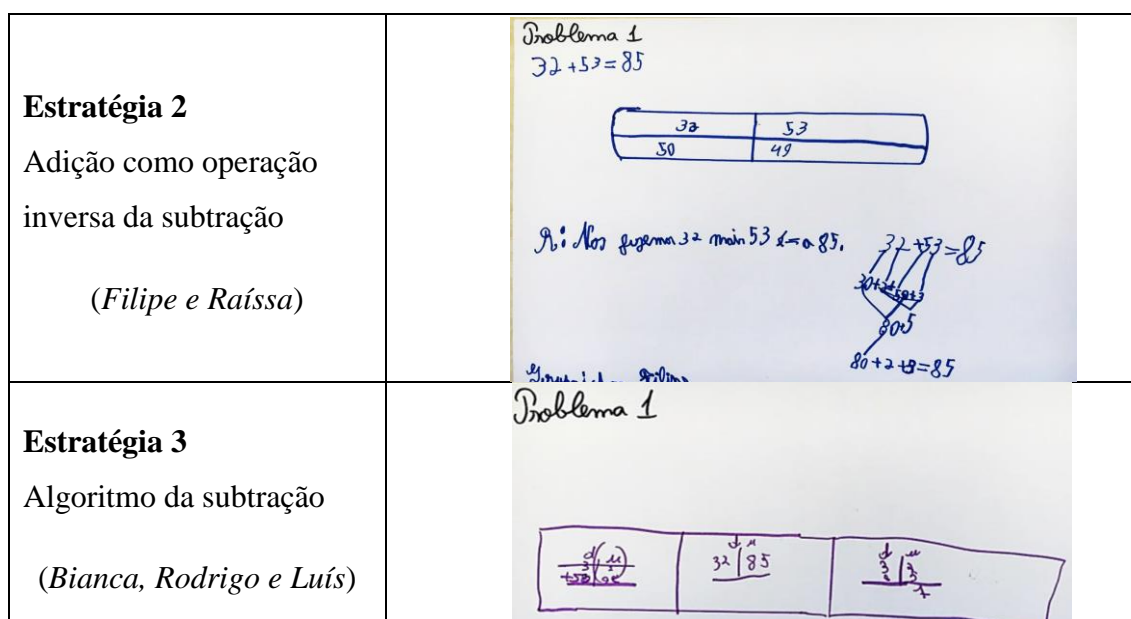 Estratégia 2
Adição como operação
inversa da subtração
(Filipe e Raíssa)
Problema 1
32+53=85
32 53
50 49
R: Nos fizemos 32 mais 53 85.
32+53=85
30+2+50+3
80 5
80+2+3=85
Filipe
Estratégia 3
Algoritmo da subtração
(Bianca, Rodrigo e Luís)
Problema 1
d u
32 85
d u